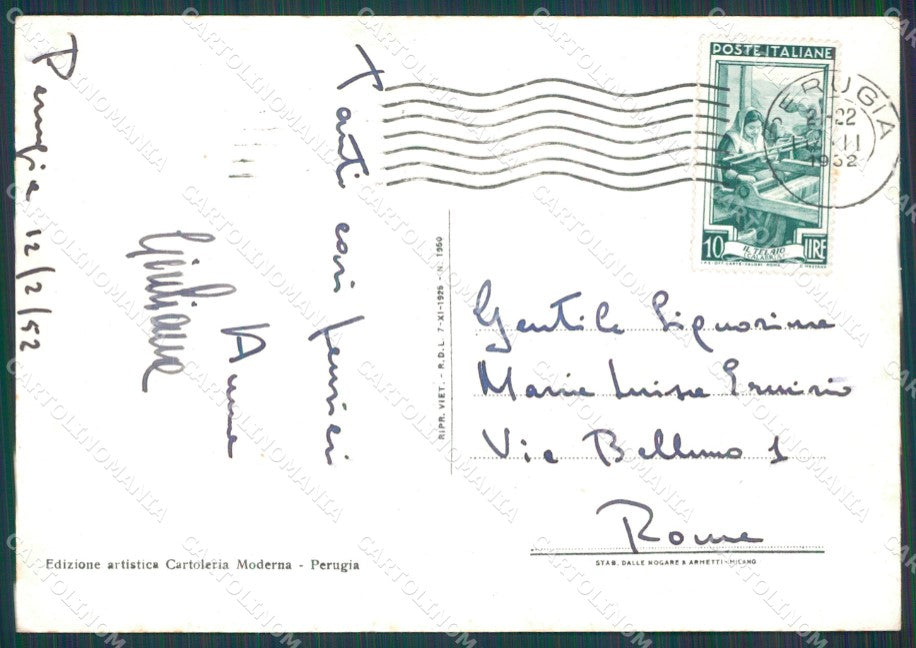 Perugia 12/2/52
Tanti cari pensieri
Anna
Giuliana
POSTE ITALIANE
10 LIRE
IL TELAIO
(CALABRIA)
PERUGIA
1952
RIPR. VIET. - R.D.L. 7-XI-1925 - N. 1950
Gentile Signorina
Maria Luisa
Via Belluno 1
Roma
STAB. DALLE NOGARE & ARMETTI - MILANO
Edizione artistica Cartoleria Moderna - Perugia
CARTOLINOMANIA